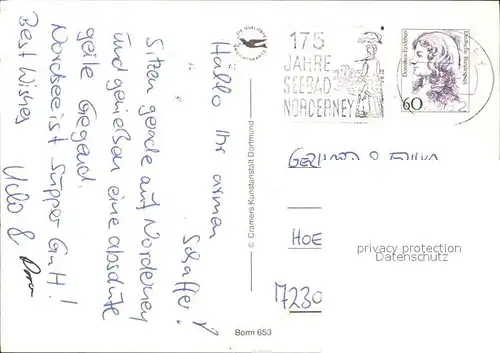 Hallo Ihr armen
Schaffer!
Sitzen gerade auf Norderney
und genießen eine absolute
geile Gegend.
Nordsee ist Supper GmH!
Best Wishes
Udo &
© Cramers Kunstanstalt Dortmund
Borm 653
175
JAHRE
SEEBAD
NORDERNEY
Deutsche Bundespost
60
HOE
7230
privacy protection
Datenschutz